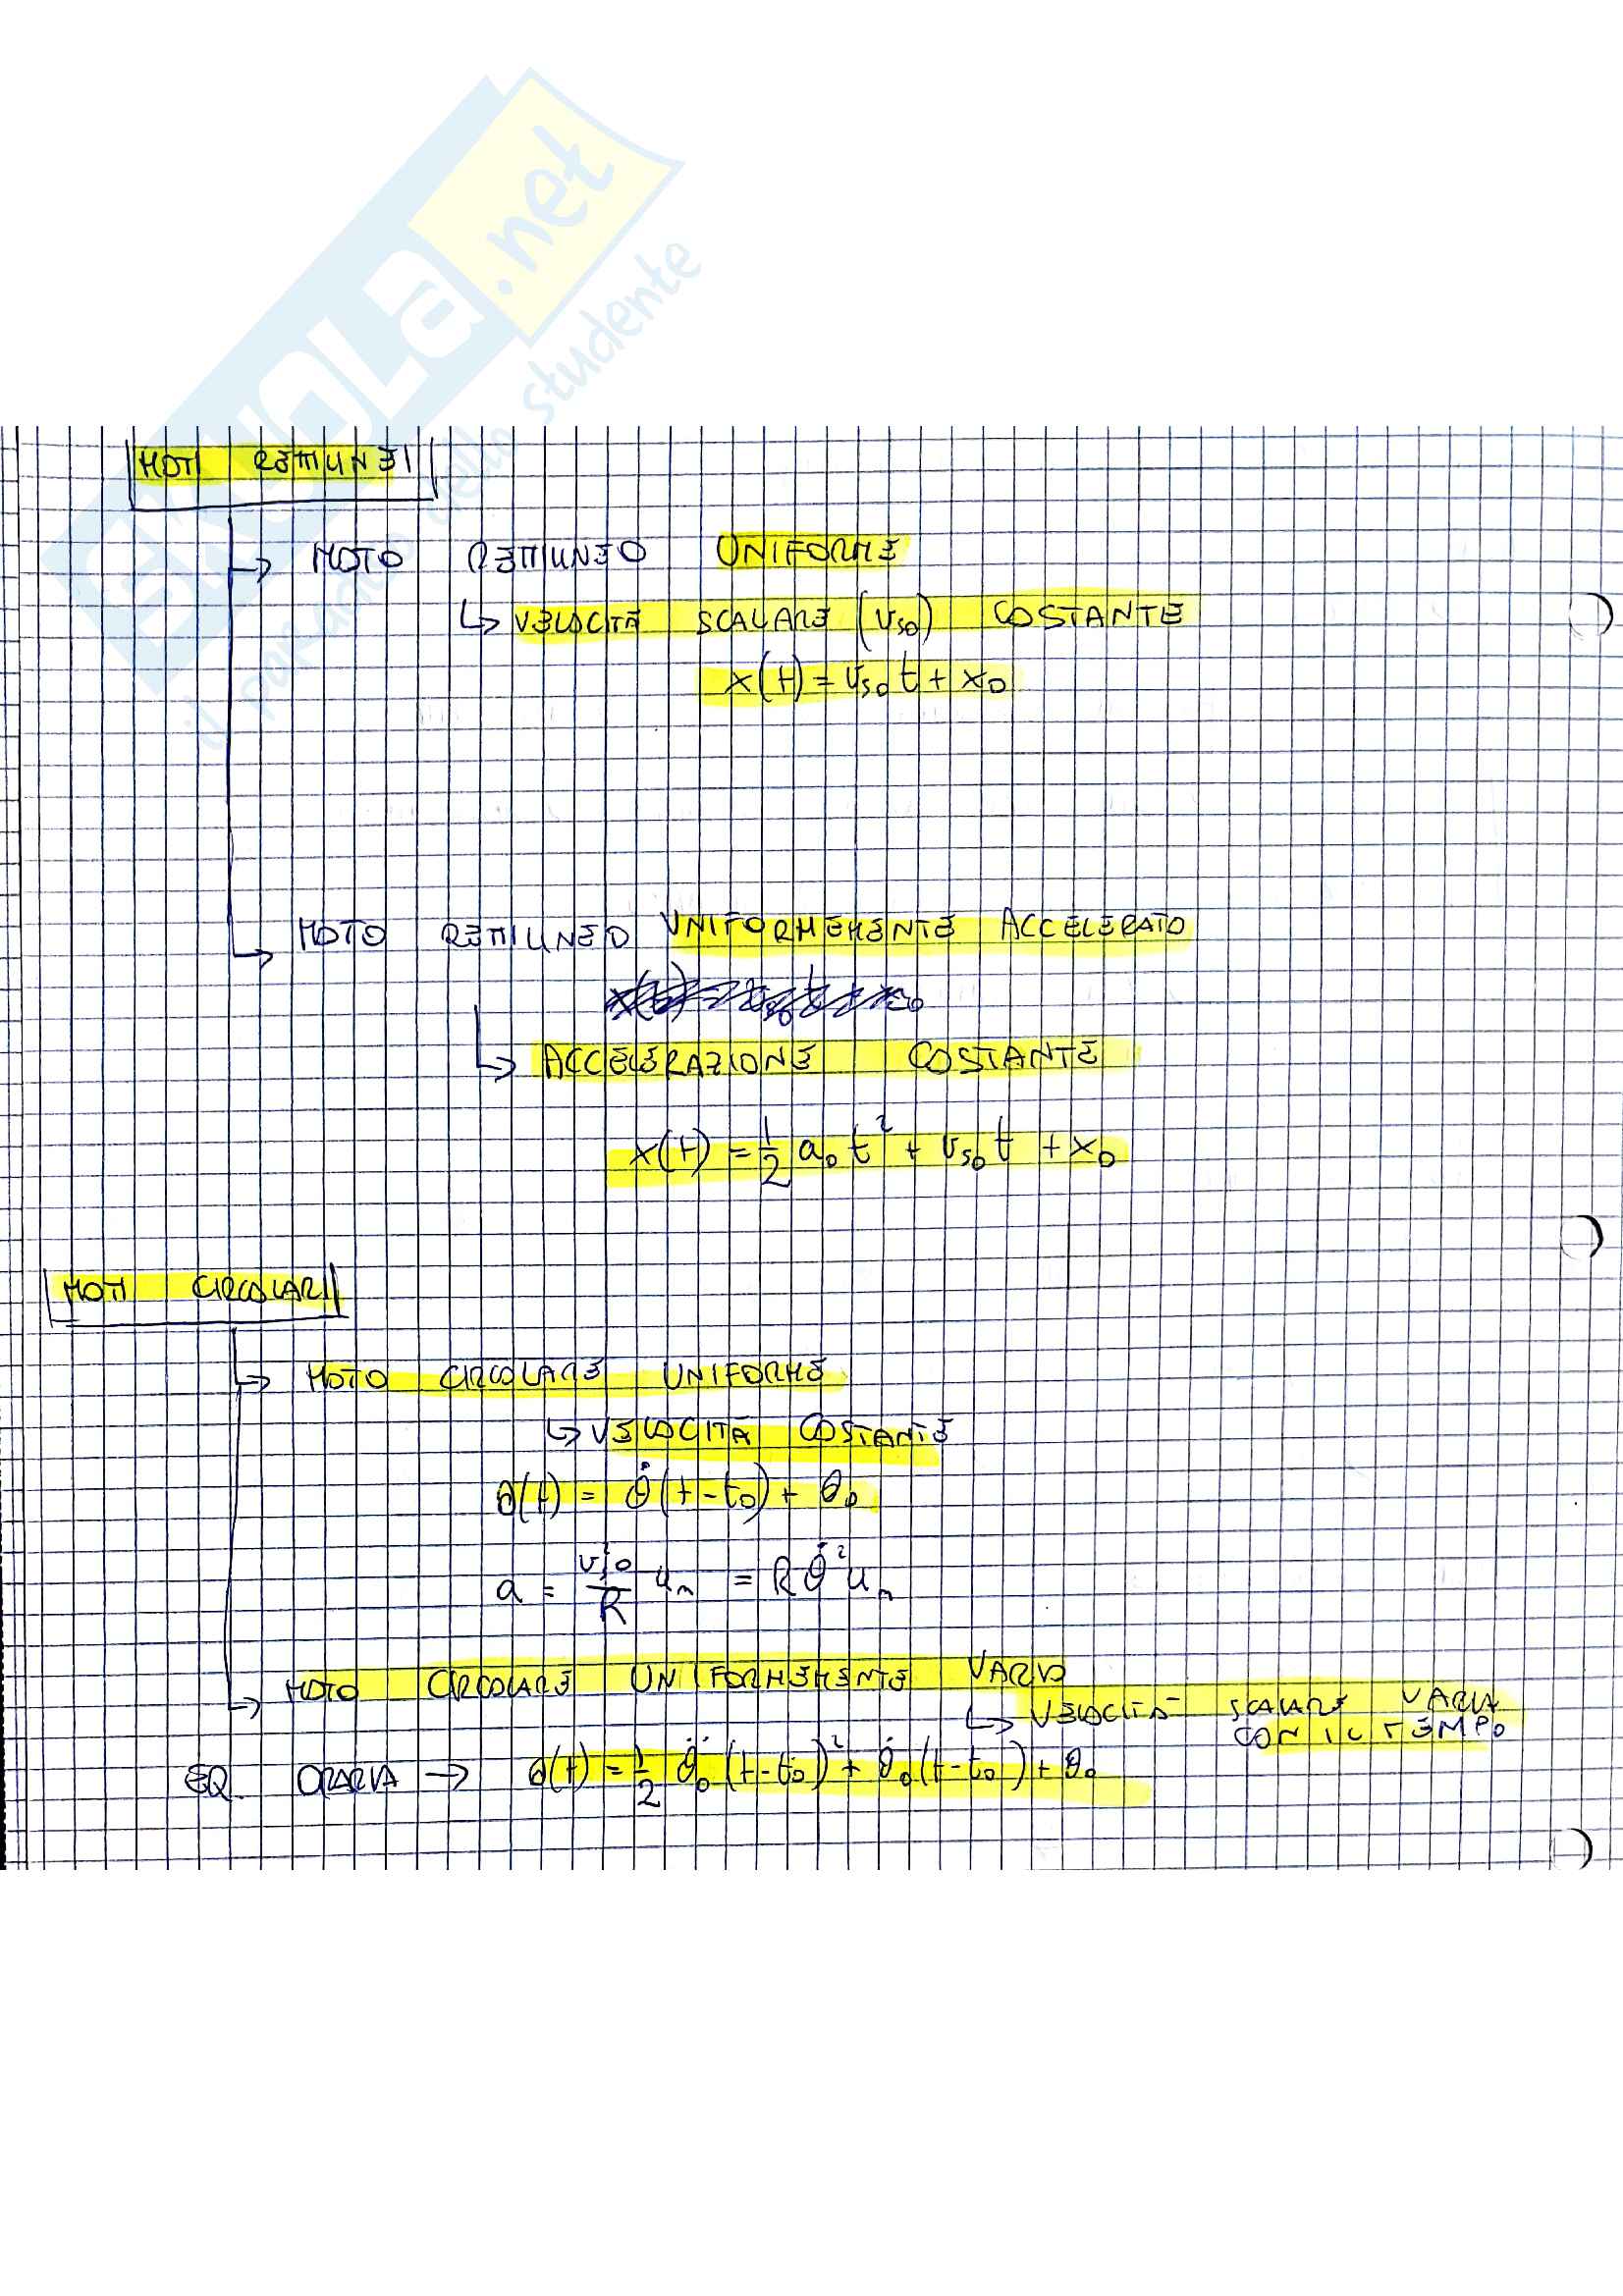 SKUOLa.net
il paradiso dello studente
MOTI RETTILINEI
→ MOTO RETTILINEO UNIFORME
↳ VELOCITÀ SCALARE (vso) COSTANTE
x(t) = vso t + x0
→ MOTO RETTILINEO UNIFORMEMENTE ACCELERATO
↳ ACCELERAZIONE COSTANTE
x(t) = 1/2 a0 t² + vso t + x0
MOTI CIRCOLARI
→ MOTO CIRCOLARE UNIFORME
↳ VELOCITÀ COSTANTE
θ(t) = θ̇(t - t0) + θ0
a = v²so/R un = Rθ̇² un
→ MOTO CIRCOLARE UNIFORMEMENTE VARIO
↳ VELOCITÀ SCALARE VARIA
CON IL TEMPO
EQ. ORARIA → θ(t) = 1/2 θ̈0 (t - t0)² + θ̇0 (t - t0) + θ0